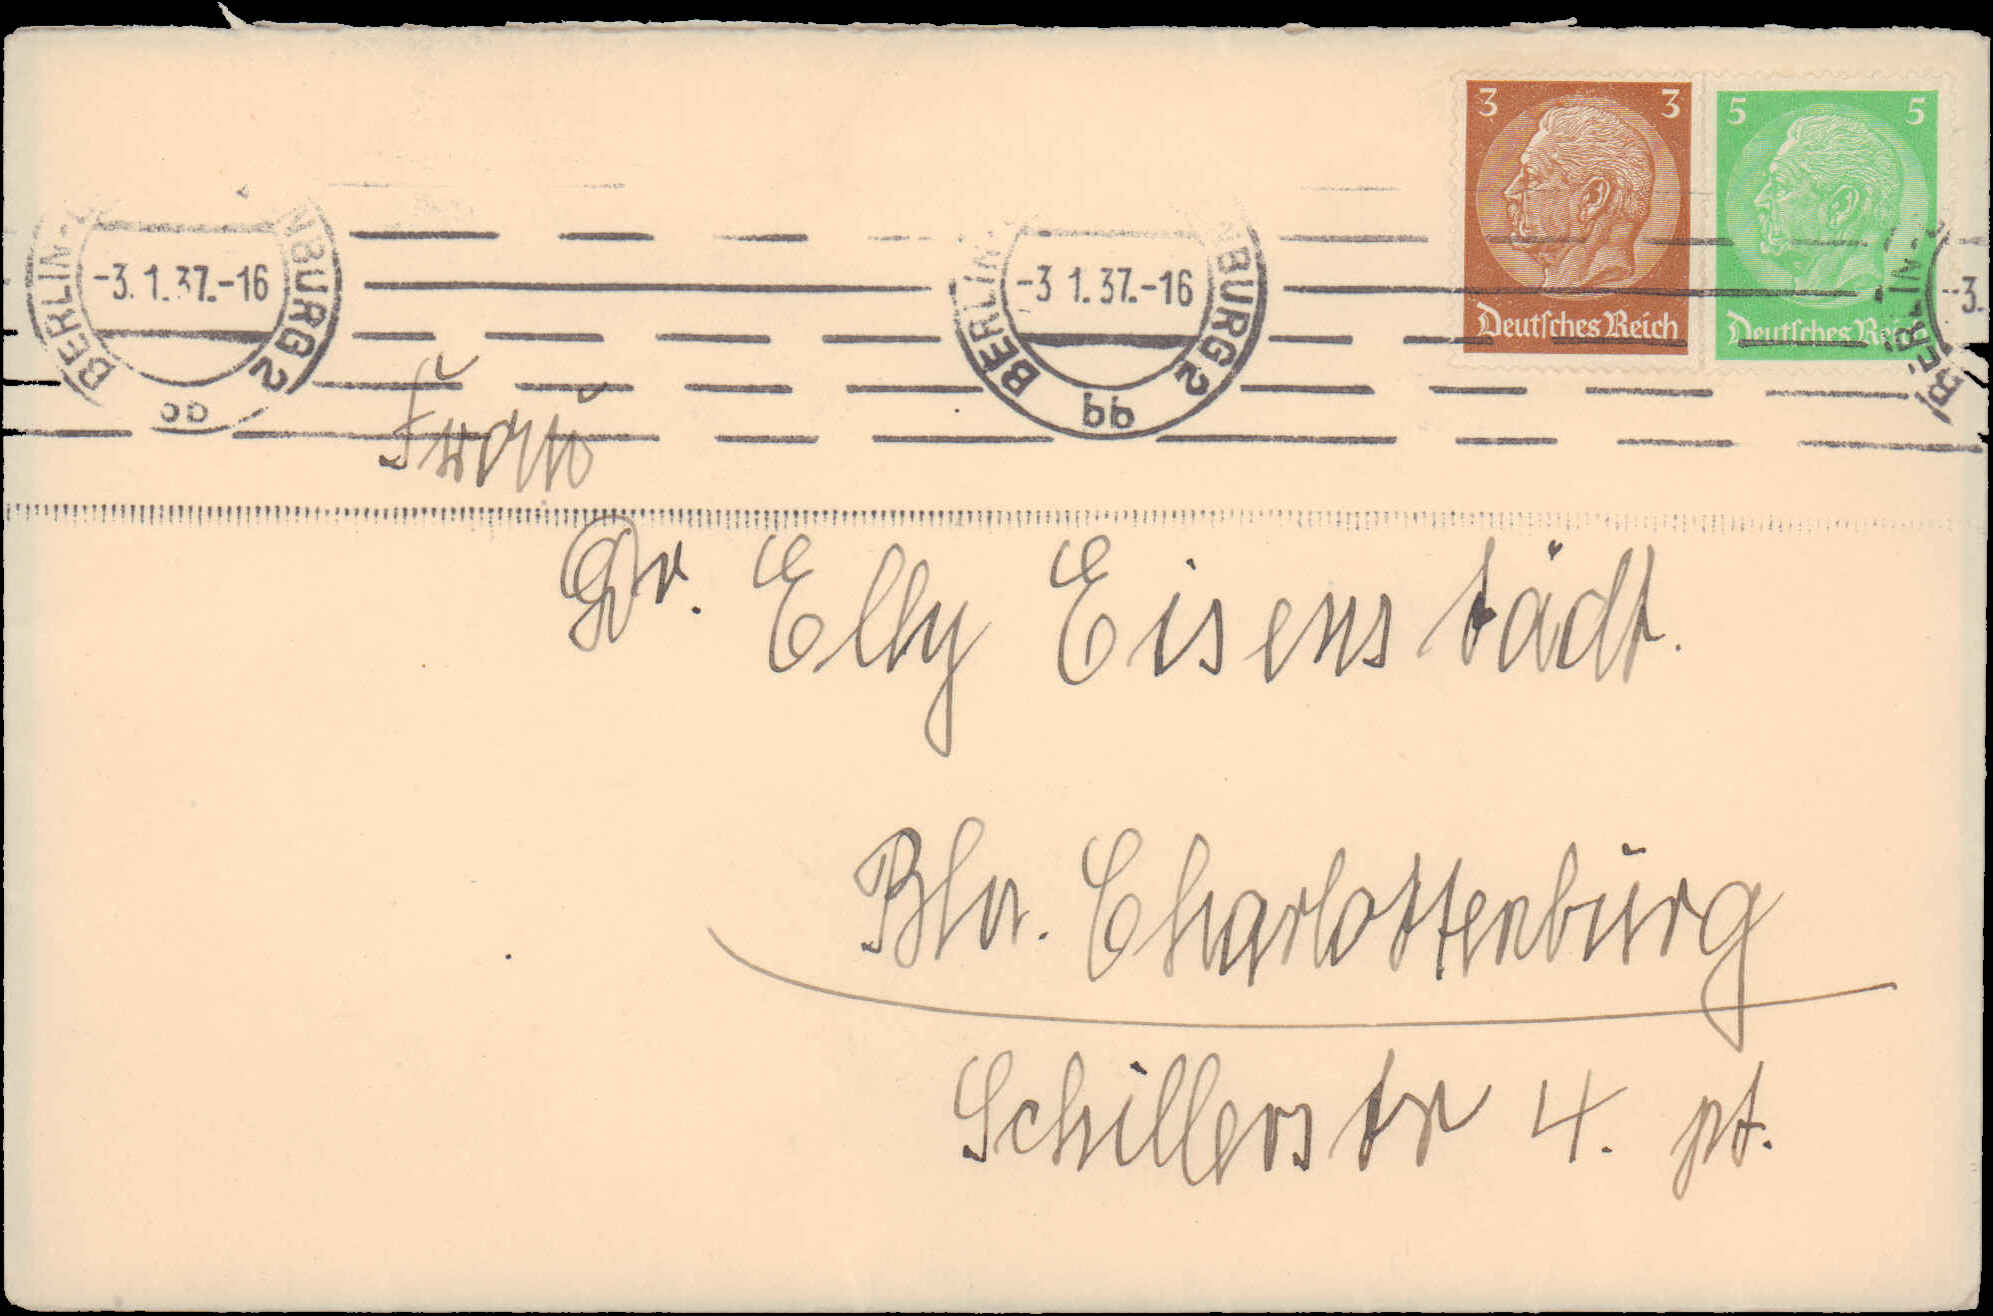 3 3 5 5
Deutsches Reich Deutsches Reich
BERLIN- NBURG 2 BERLIN- NBURG 2 BERLIN-
-3.1.37.-16 -3.1.37.-16 -3.
bb bb
Frau
Dr. Elly Eisenstädt.
Bln. Charlottenburg
Schillerstr 4. pt.